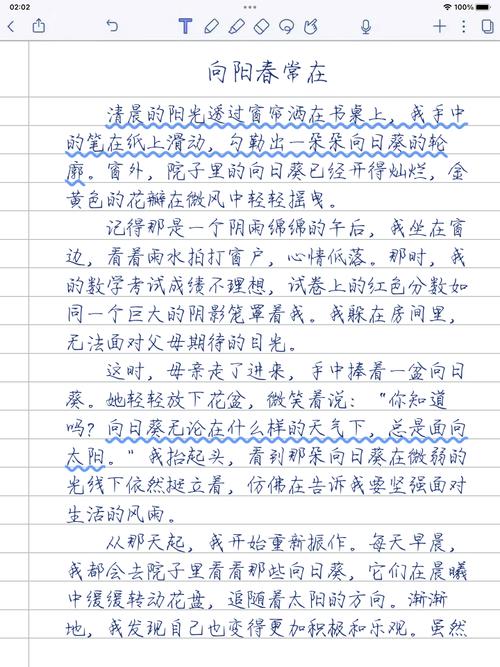 02:02
100%
向阳春常在
清晨的阳光透过窗帘洒在书桌上，我手中
的笔在纸上滑动，勾勒出一朵朵向日葵的轮
廓。窗外，院子里的向日葵已经开得灿烂，金
黄色的花瓣在微风中轻轻摇曳。
记得那是一个阴雨绵绵的午后，我坐在窗
边，看着雨水拍打窗户，心情低落。那时，我
的数学考试成绩不理想，试卷上的红色分数如
同一个巨大的阴影笼罩着我。我躲在房间里，
无法面对父母期待的目光。
这时，母亲走了进来，手中捧着一盆向日
葵。她轻轻放下花盆，微笑着说：“你知道
吗？向日葵无论在什么样的天气下，总是面向
太阳。”我抬起头，看到那朵向日葵在微弱的
光线下依然挺立着，仿佛在告诉我要坚强面对
生活的风雨。
从那天起，我开始重新振作。每天早晨，
我都会去院子里看看那些向日葵，它们在晨曦
中缓缓转动花盘，追随着太阳的方向。渐渐
地，我发现自己也变得更加积极和乐观。虽然